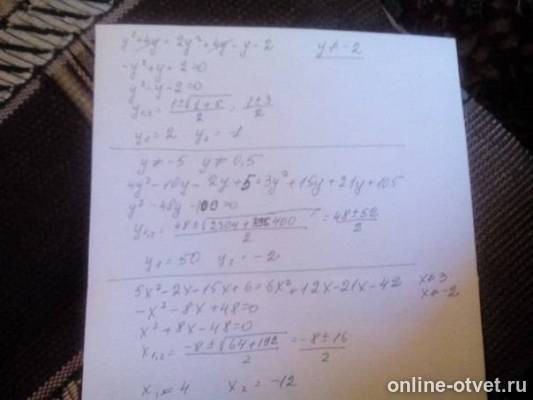 y²+4y = 2y²+4y-y-2 y≠-2
-y²+y+2=0
y²-y-2=0
y₁,₂= (1±√(1+8))/2 = (1±3)/2
y₁=2 y₂=-1
y≠-5 y≠0,5
4y²-10y-2y+5=3y²+15y+21y+105
y²-48y-100=0
y₁,₂= (48±√(2304+400))/2 = (48±52)/2
y₁=50 y₂=-2
5x²-2x-15x+6=6x²+12x-21x-42 x≠3
-x²-8x+48=0 x≠-2
x²+8x-48=0
x₁,₂= (-8±√(64+192))/2 = (-8±16)/2
x₁=4 x₂=-12
online-otvet.ru